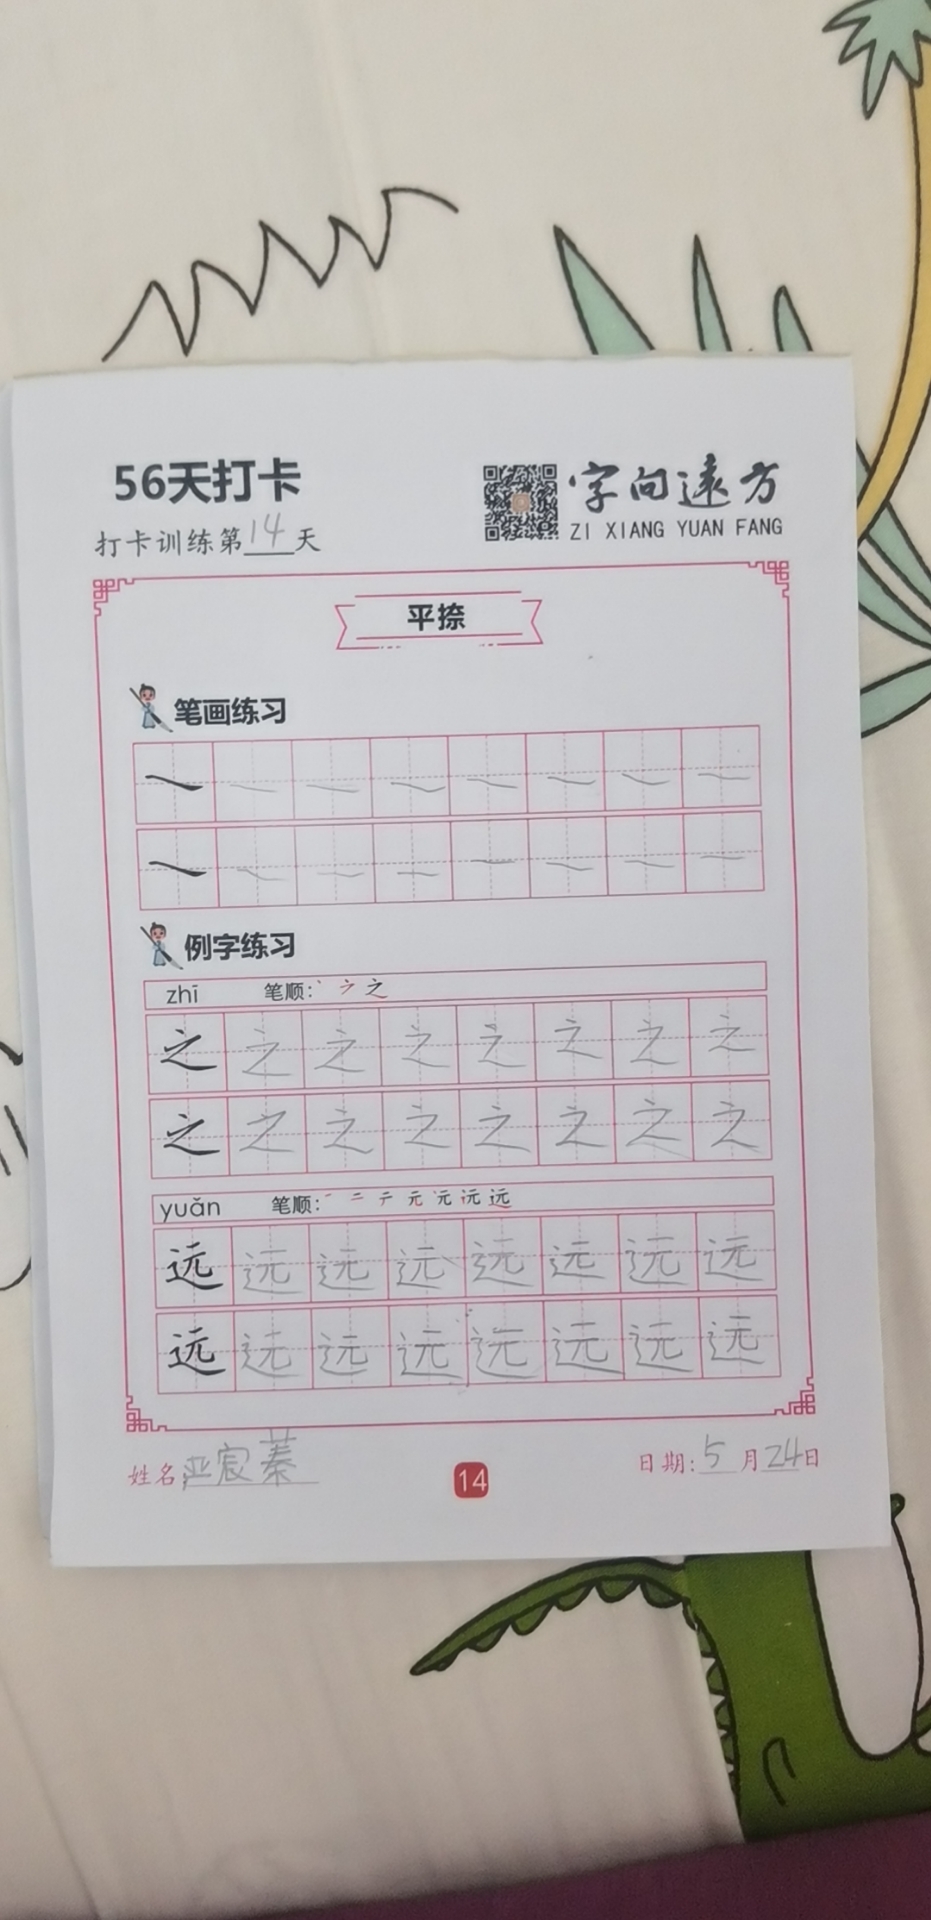 56天打卡
字向遠方
打卡训练第14天
ZI XIANG YUAN FANG
平捺
笔画练习
例字练习
zhī 笔顺: 丶 ㇇ 之
之 之 之 之 之 之 之 之
之 之 之 之 之 之 之 之
yuǎn 笔顺: 一 二 テ 元 沅 远
远 远 远 远 远 远 远 远
远 远 远 远 远 远 远 远
姓名 严宸蓁
14
日期: 5 月 24 日